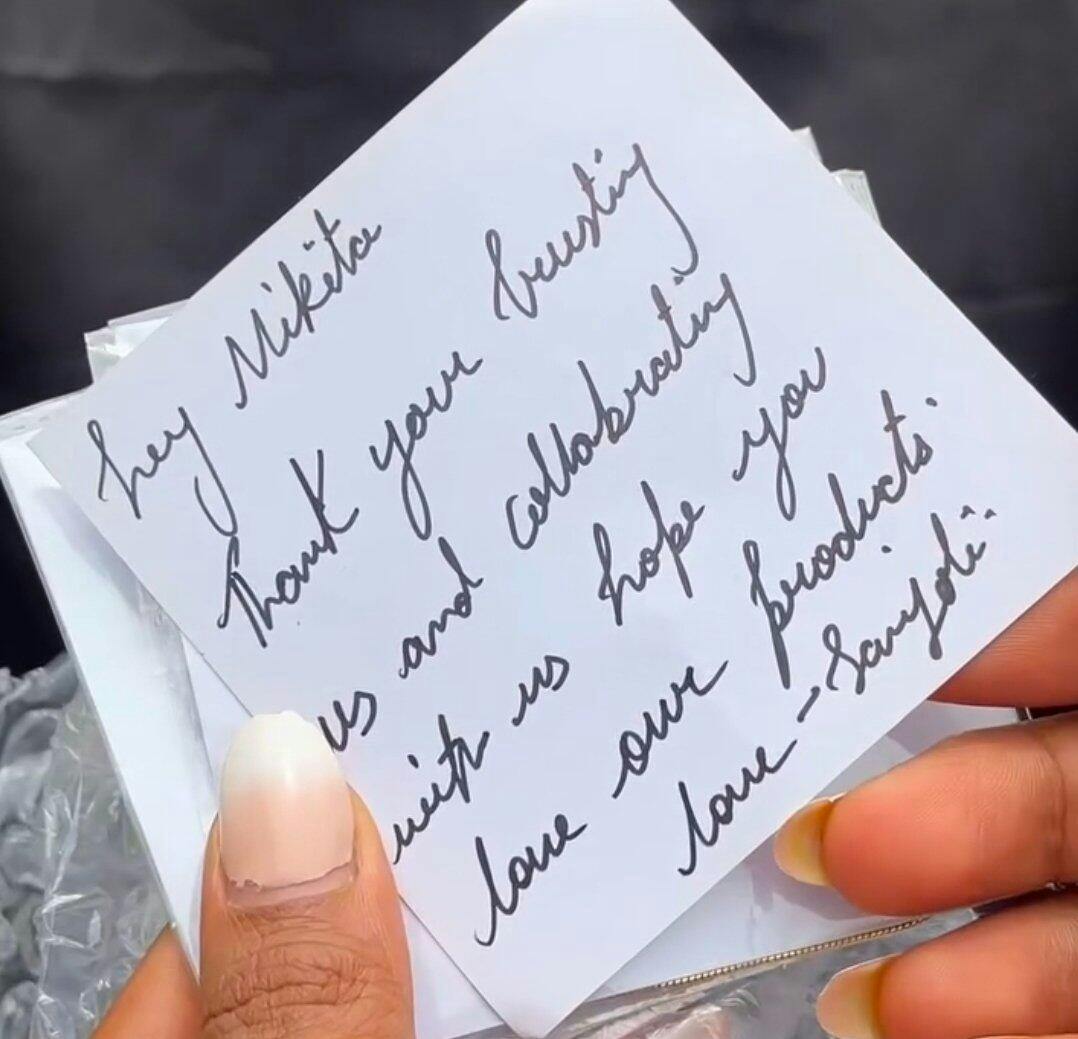 hey Nikita
Thank your trusting
us and collabrating
with us hope you
love our products.
love - Sanjoli